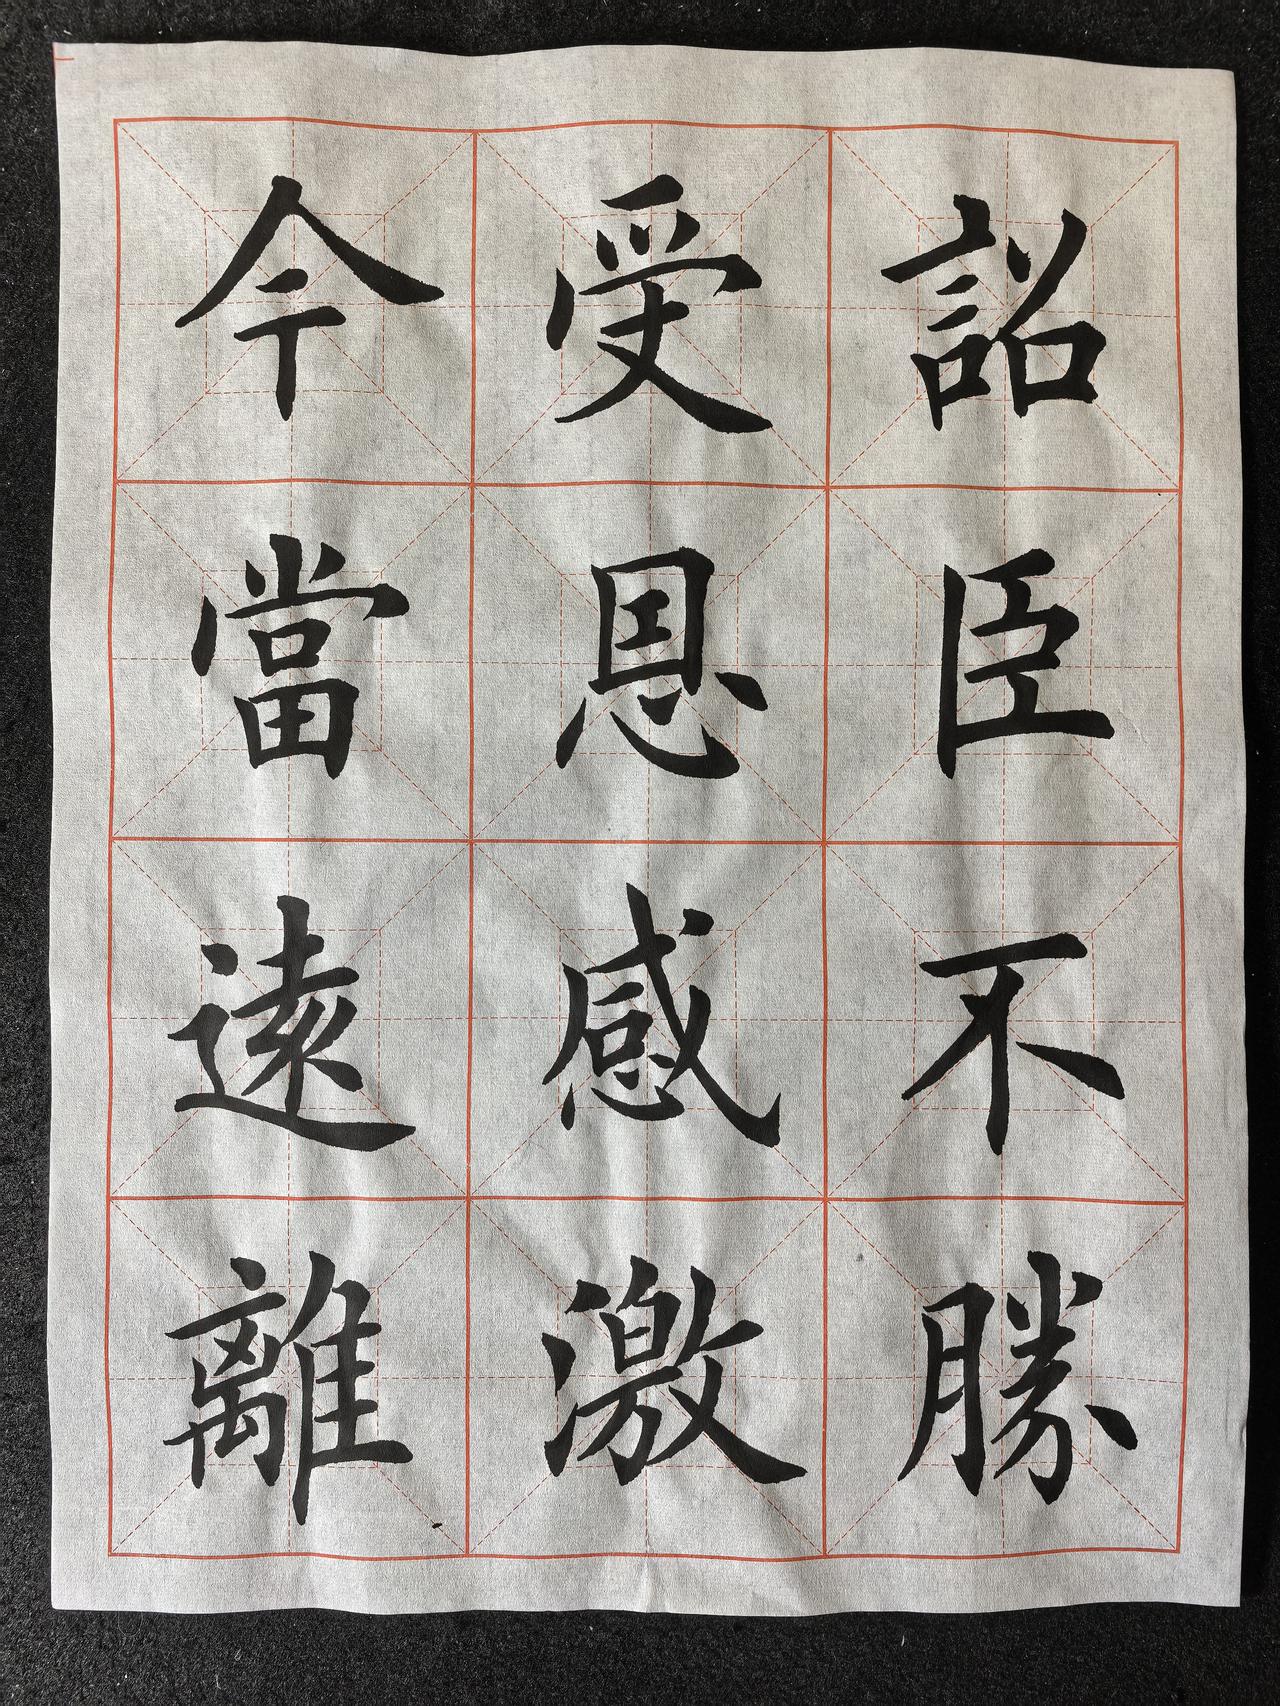 詔臣不勝
受恩感激
今當遠離